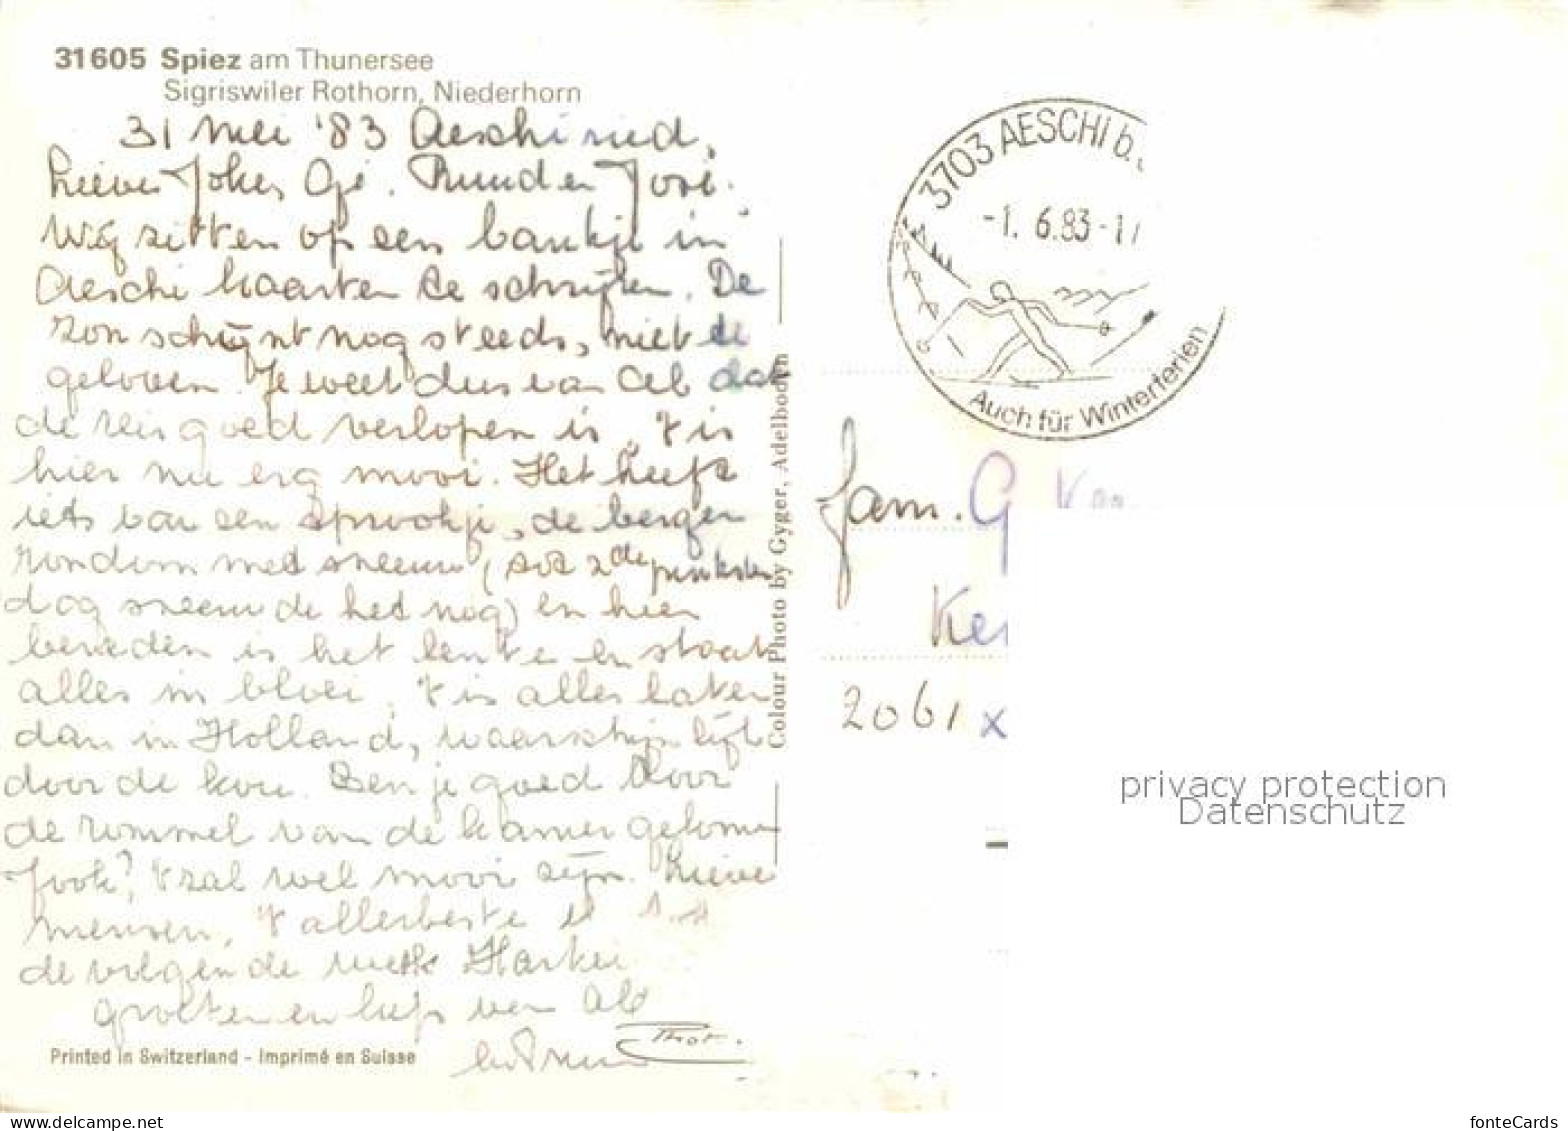 31605 Spiez am Thunersee
Sigriswiler Rothorn, Niederhorn
31 mei '83 Aeschiried,
Lieve Jokes, Gé. Ruud en José.
Wij zitten op een bankje in
Aeschi kaarten te schrijven. De
zon schijnt nog steeds, niet te
geloven. Je weet dus van Ab dat
de reis goed verlopen is, 't is
hier nu erg mooi. Het heeft
iets van een sprookje, de bergen
rondom met sneeuw (tot 2de pinkster
dag sneeuwde het nog) en hier
beneden is het lente en staat
alles in bloei, 't is alles later
dan in Holland, waarschijnlijk
door de kou. Ben je goed door
de rommel van de kamer gekomen
Jook? 't zal wel mooi zijn. Lieve
mensen, 't allerbeste
de volgende week Harke
groeten en liefs van Ab
Printed in Switzerland - Imprimé en Suisse
Phot.
Colour Photo by Gyger, Adelboden
3703 AESCHI b.
-1. 6.83-1
Auch für Winterferien
fam. G
Ker
2061 x
privacy protection
Datenschutz
www.delcampe.net
fonteCards